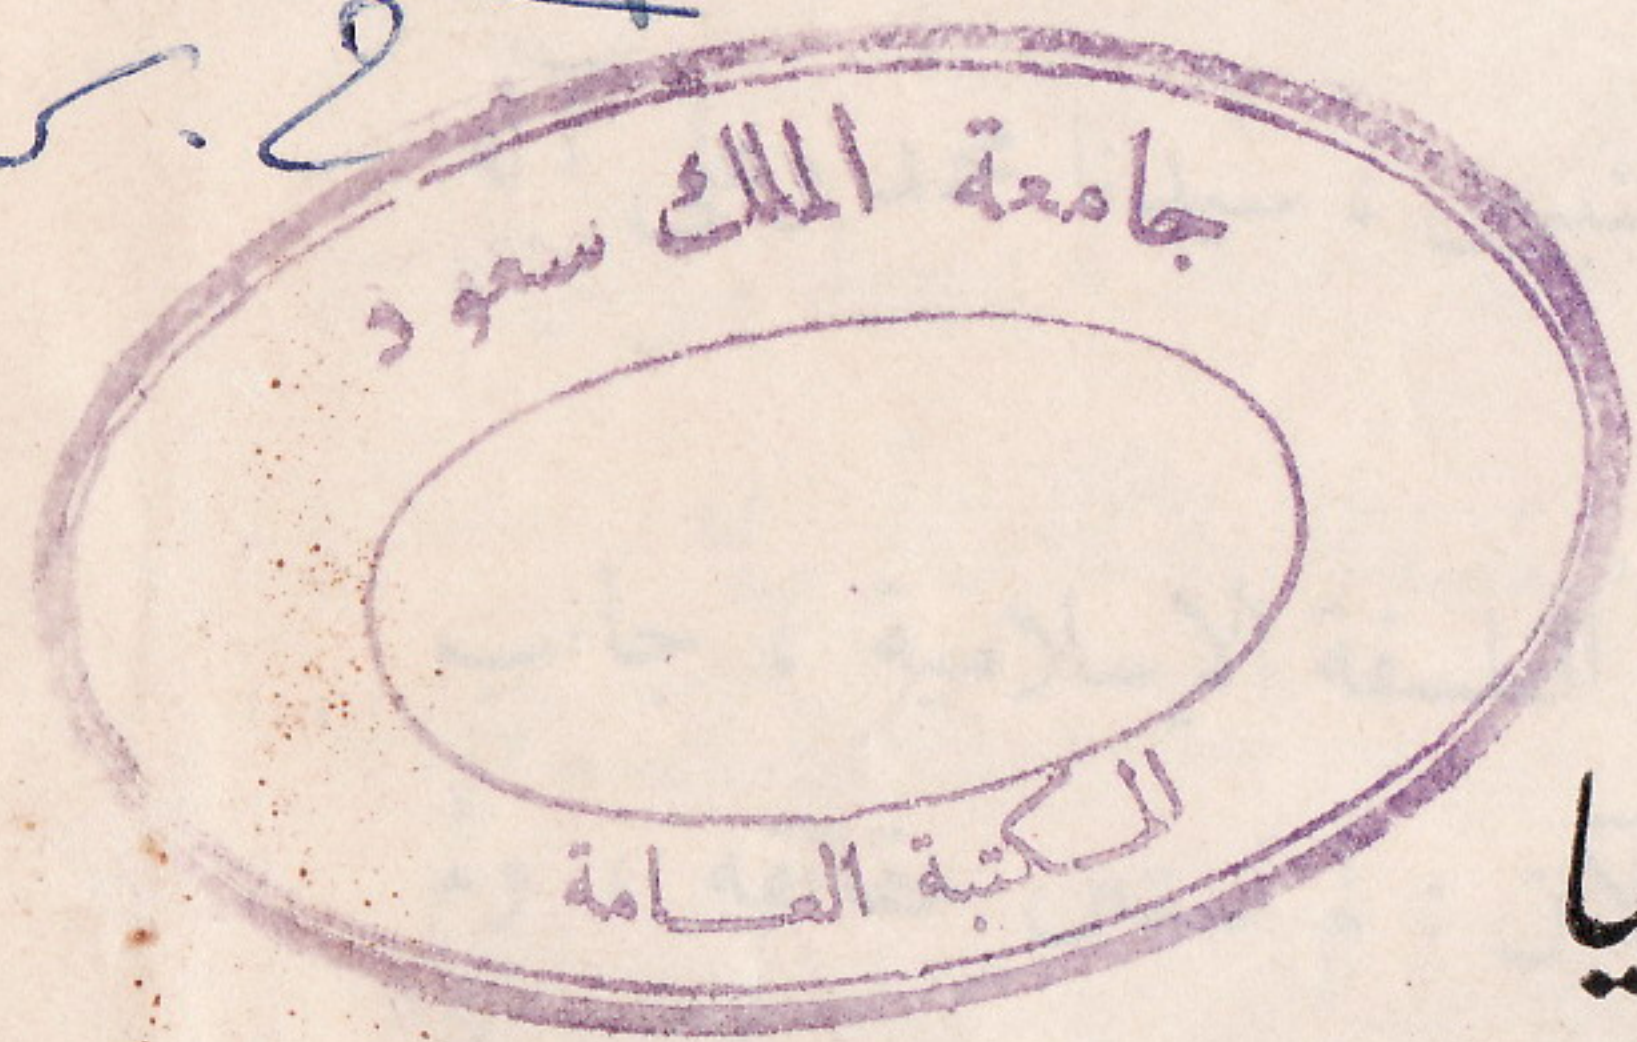 جامعة الملك سعود
المكتبة العامة
يا